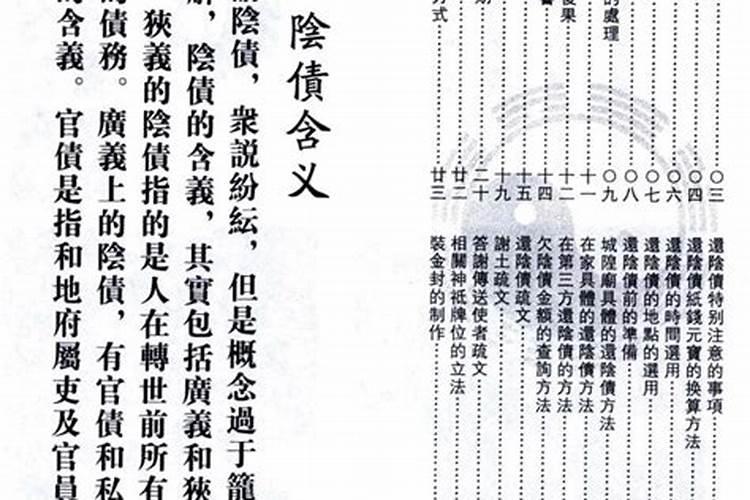 〇三
〇四
〇六
〇七
〇八
處理〇九
十一
果十二
十四
十五
十九
二十
廿二
式廿三
還陰債特别注意的事項
還陰債紙錢元寶的换算方法
還陰債的時間選用
還陰債的地點的選用
還陰債前的準備
城隍廟具體的還陰債方法
在家具體的還陰債方法
在第三方還陰債的方法
欠陰債金額的查詢方法
還陰債疏文
謝土疏文
答謝傳送使者疏文
相關神祗牌位的立法
裝金封的制作
陰債含义
陰債，衆説紛紜，但是概念過于籠
，陰債的含義，其實包括廣義和狹
狹義的陰債指的是人在轉世前所有
的債務。廣義上的陰債，有官債和私
含義。官債是指和地府屬吏及官員